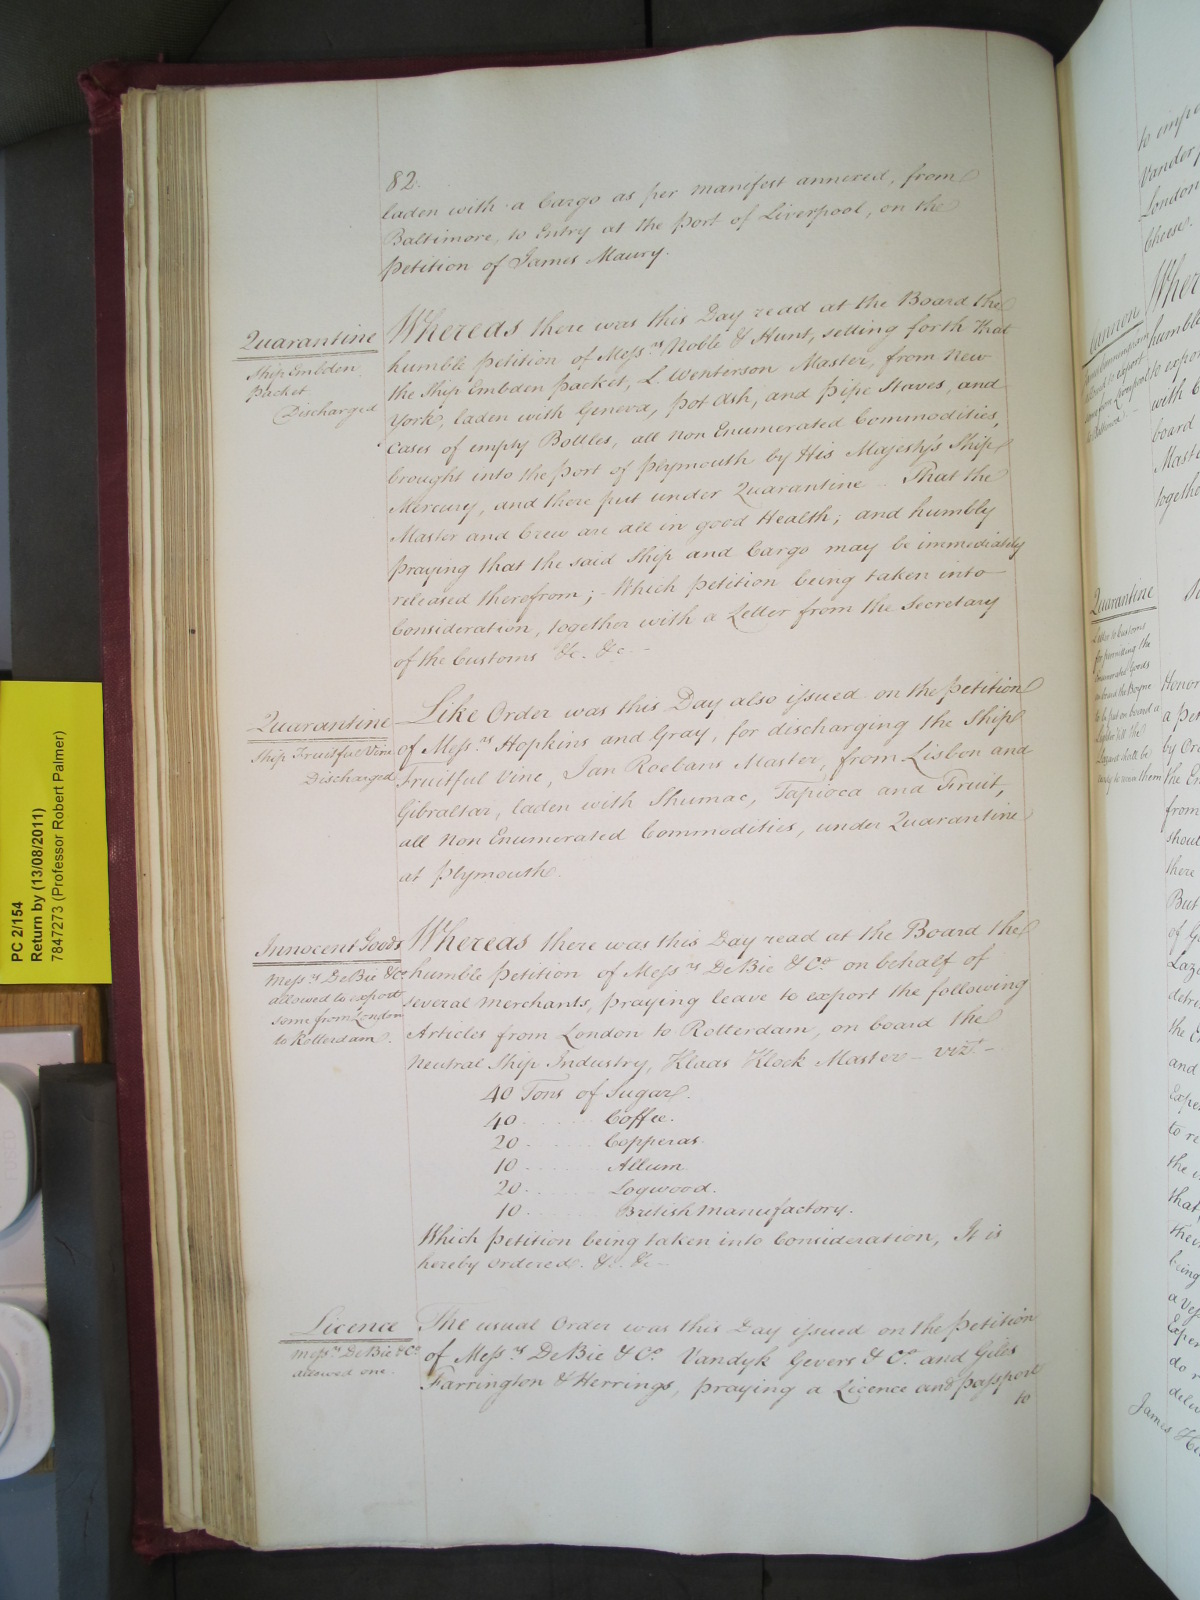 82.
laden with a Cargo as per manifest annexed, from
Baltimore, to Entry at the Port of Liverpool, on the
Petition of James Maury.
Quarantine
Ship Embden
Packet
Discharged
Whereas there was this Day read at the Board the
humble Petition of Mess.rs Noble & Hunt, setting forth that
the Ship Embden Packet, L. Wenterson Master, from New
York, laden with Geneva, Pot Ash, and Pipe Staves, and
Cases of empty Bottles, all non Enumerated Commodities,
brought into the Port of Plymouth by His Majesty's Ship
Mercury, and there put under Quarantine - That the
Master and Crew are all in good Health; and humbly
praying that the said Ship and Cargo may be immediately
released therefrom; - Which Petition being taken into
Consideration, together with a Letter from the Secretary
of the Customs &c. &c. -
Quarantine
Ship Fruitful Vine
Discharged
Like Order was this Day also issued on the Petition
of Mess.rs Hopkins and Gray, for discharging the Ship
Fruitful Vine, Jan Roebans Master, from Lisbon and
Gibraltar, laden with Shumac, Tapioca and Fruit,
all non Enumerated Commodities, under Quarantine
at Plymouth.
Innocent Goods
Mess.rs DeBie & Co
allowed to export
some from London
to Rotterdam.
Whereas there was this Day read at the Board the
humble Petition of Mess.rs DeBie & Co. on behalf of
several merchants, praying leave to export the following
Articles from London to Rotterdam, on board the
Neutral Ship Industry, Klaas Klock Master - vizt. -
40 Tons of Sugar.
40 ...... Coffee.
20 ...... Copperas.
10 ...... Allum
20 ...... Logwood.
10 ...... British manufactory.
Which Petition being taken into Consideration, It is
hereby Ordered. &c. &c -
Licence
Mess.rs DeBie & Co.
allowed one.
The usual Order was this Day issued on the Petition
of Mess.rs DeBie & Co. Vandyk Gevers & Co. and Giles
Farrington & Herrings, praying a Licence and Passport
to
PC 2/154
Return by (13/08/2011)
7847273 (Professor Robert Palmer)
to impo
Vander
London
Cheese.
Cannon
Wher
humble
to expor
with C
board
Maste
togethe
Quarantine
Letter to Customs
for permitting the
Enumerated Goods
Honor
a Per
by Or
the En
from
shoul
there
But
of G
Laza
detri
the C
and
Expe
to re
the
that
ther
being
a Vess
Exper
do n
deliv
James H